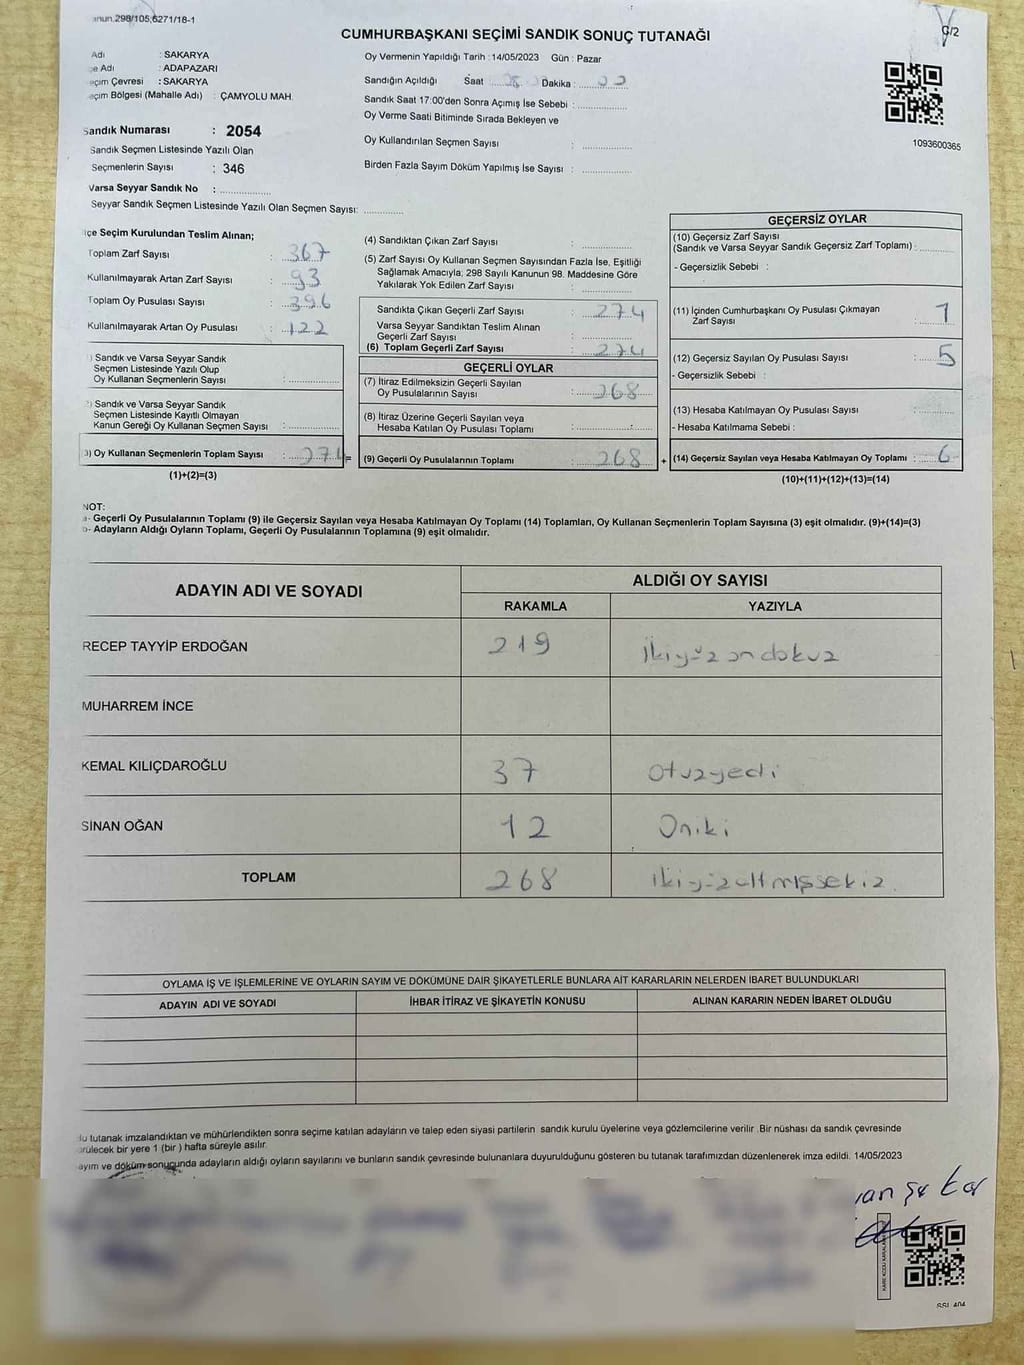 anun,298/105;6271/18-1
C/2
CUMHURBAŞKANI SEÇİMİ SANDIK SONUÇ TUTANAĞI
Adı : SAKARYA
e Adı : ADAPAZARI
eçim Çevresi : SAKARYA
eçim Bölgesi (Mahalle Adı) : ÇAMYOLU MAH.
Sandık Numarası : 2054
Sandık Seçmen Listesinde Yazılı Olan
Seçmenlerin Sayısı : 346
Varsa Seyyar Sandık No :
Seyyar Sandık Seçmen Listesinde Yazılı Olan Seçmen Sayısı:
Oy Vermenin Yapıldığı Tarih : 14/05/2023 Gün : Pazar
Sandığın Açıldığı Saat Dakika :
Sandık Saat 17:00'den Sonra Açımış İse Sebebi :
Oy Verme Saati Bitiminde Sırada Bekleyen ve
Oy Kullandırılan Seçmen Sayısı :
Birden Fazla Sayım Döküm Yapılmış İse Sayısı :
1093600365
çe Seçim Kurulundan Teslim Alınan;
Toplam Zarf Sayısı : 367
Kullanılmayarak Artan Zarf Sayısı : 93
Toplam Oy Pusulası Sayısı : 396
Kullanılmayarak Artan Oy Pusulası : 122
) Sandık ve Varsa Seyyar Sandık
Seçmen Listesinde Yazılı Olup
Oy Kullanan Seçmenlerin Sayısı :
) Sandık ve Varsa Seyyar Sandık
Seçmen Listesinde Kayıtlı Olmayan
Kanun Gereği Oy Kullanan Seçmen Sayısı :
3) Oy Kullanan Seçmenlerin Toplam Sayısı : 274 =
(1)+(2)=(3)
(4) Sandıktan Çıkan Zarf Sayısı :
(5) Zarf Sayısı Oy Kullanan Seçmen Sayısından Fazla İse, Eşitliği
Sağlamak Amacıyla; 298 Sayılı Kanunun 98. Maddesine Göre
Yakılarak Yok Edilen Zarf Sayısı :
Sandıkta Çıkan Geçerli Zarf Sayısı : 274
Varsa Seyyar Sandıktan Teslim Alınan
Geçerli Zarf Sayısı :
(6) Toplam Geçerli Zarf Sayısı : 274
GEÇERLİ OYLAR
(7) İtiraz Edilmeksizin Geçerli Sayılan
Oy Pusulalarının Sayısı : 268
(8) İtiraz Üzerine Geçerli Sayılan veya
Hesaba Katılan Oy Pusulası Toplamı :
(9) Geçerli Oy Pusulalarının Toplamı : 268 +
GEÇERSİZ OYLAR
(10) Geçersiz Zarf Sayısı
(Sandık ve Varsa Seyyar Sandık Geçersiz Zarf Toplamı) :
- Geçersizlik Sebebi :
(11) İçinden Cumhurbaşkanı Oy Pusulası Çıkmayan
Zarf Sayısı : 1
(12) Geçersiz Sayılan Oy Pusulası Sayısı : 5
- Geçersizlik Sebebi :
(13) Hesaba Katılmayan Oy Pusulası Sayısı :
- Hesaba Katılmama Sebebi :
(14) Geçersiz Sayılan veya Hesaba Katılmayan Oy Toplamı : 6
(10)+(11)+(12)+(13)=(14)
NOT:
a- Geçerli Oy Pusulalarının Toplamı (9) ile Geçersiz Sayılan veya Hesaba Katılmayan Oy Toplamı (14) Toplamları, Oy Kullanan Seçmenlerin Toplam Sayısına (3) eşit olmalıdır. (9)+(14)=(3)
b- Adayların Aldığı Oyların Toplamı, Geçerli Oy Pusulalarının Toplamına (9) eşit olmalıdır.
ADAYIN ADI VE SOYADI ALDIĞI OY SAYISI
RAKAMLA YAZIYLA
RECEP TAYYİP ERDOĞAN 219 İkiyüz on dokuz
MUHARREM İNCE
KEMAL KILIÇDAROĞLU 37 Otuzyedi
SİNAN OĞAN 12 Oniki
TOPLAM 268 ikiyüzaltmışsekiz.
OYLAMA İŞ VE İŞLEMLERİNE VE OYLARIN SAYIM VE DÖKÜMÜNE DAİR ŞİKAYETLERLE BUNLARA AİT KARARLARIN NELERDEN İBARET BULUNDUKLARI
ADAYIN ADI VE SOYADI İHBAR İTİRAZ VE ŞİKAYETİN KONUSU ALINAN KARARIN NEDEN İBARET OLDUĞU
u tutanak imzalandıktan ve mühürlendikten sonra seçime katılan adayların ve talep eden siyasi partilerin sandık kurulu üyelerine veya gözlemcilerine verilir .Bir nüshası da sandık çevresinde
rülecek bir yere 1 (bir ) hafta süreyle asılır.
ayım ve döküm sonucunda adayların aldığı oyların sayılarını ve bunların sandık çevresinde bulunanlara duyurulduğunu gösteren bu tutanak tarafımızdan düzenlenerek imza edildi. 14/05/2023